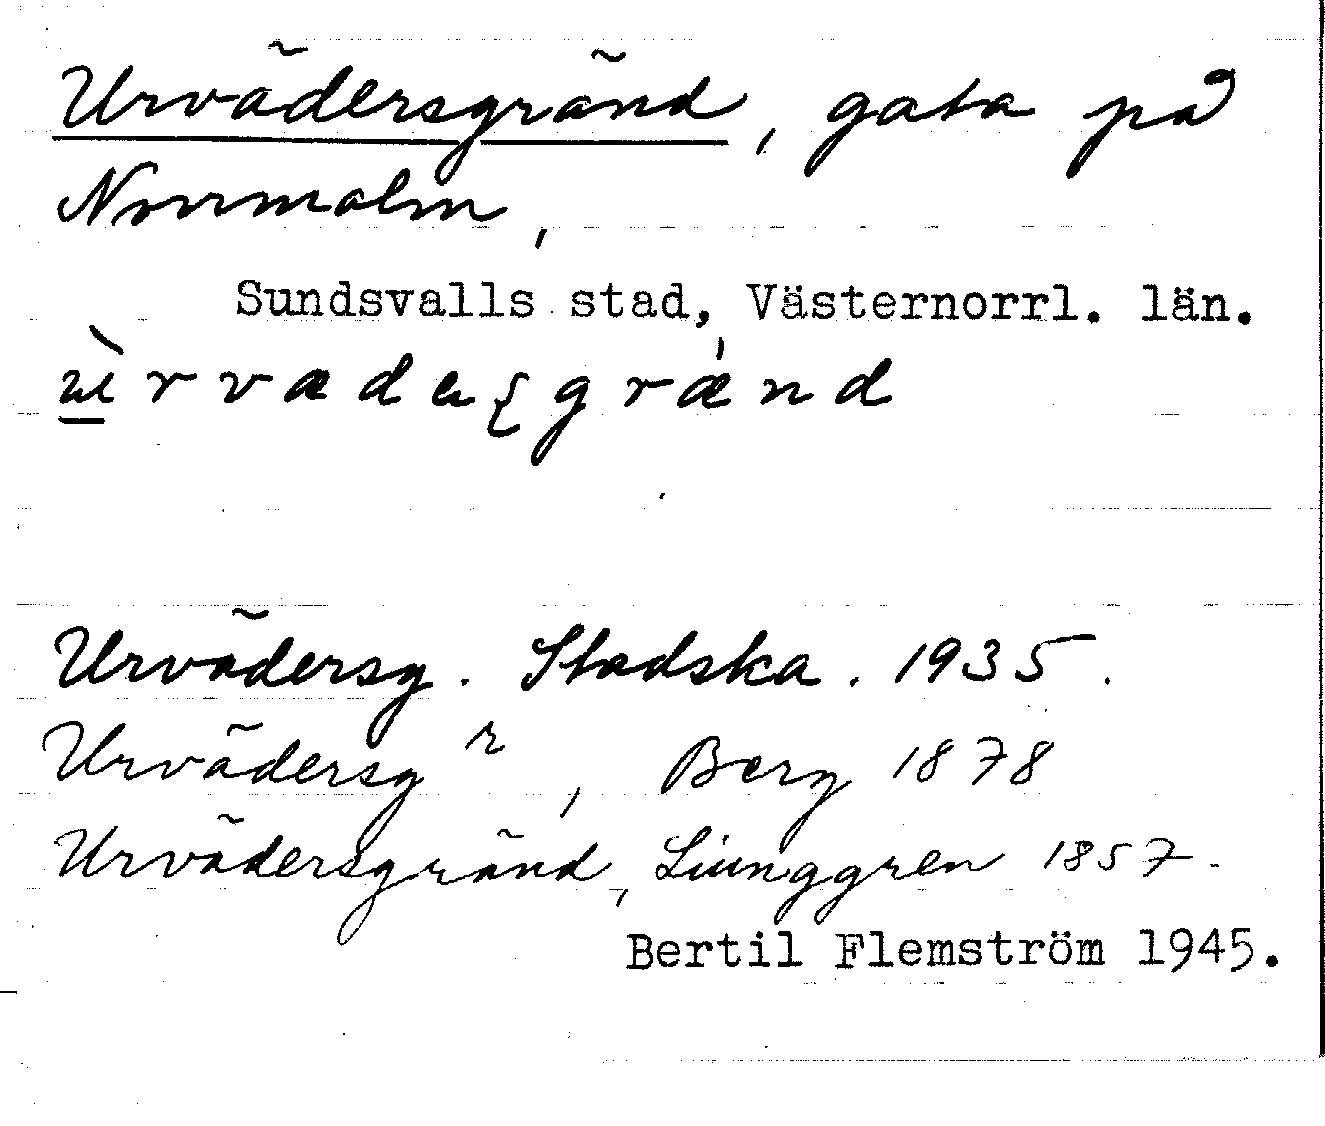 Urvädersgränd, gata på
Norrmalm,
Sundsvalls stad, Västernorrl. län.
Urvädersg. Stadska. 1935.
Urvädersgr, Berg 1878
Urvädersgränd, Ljunggren 1857.
Bertil Flemström 1945.